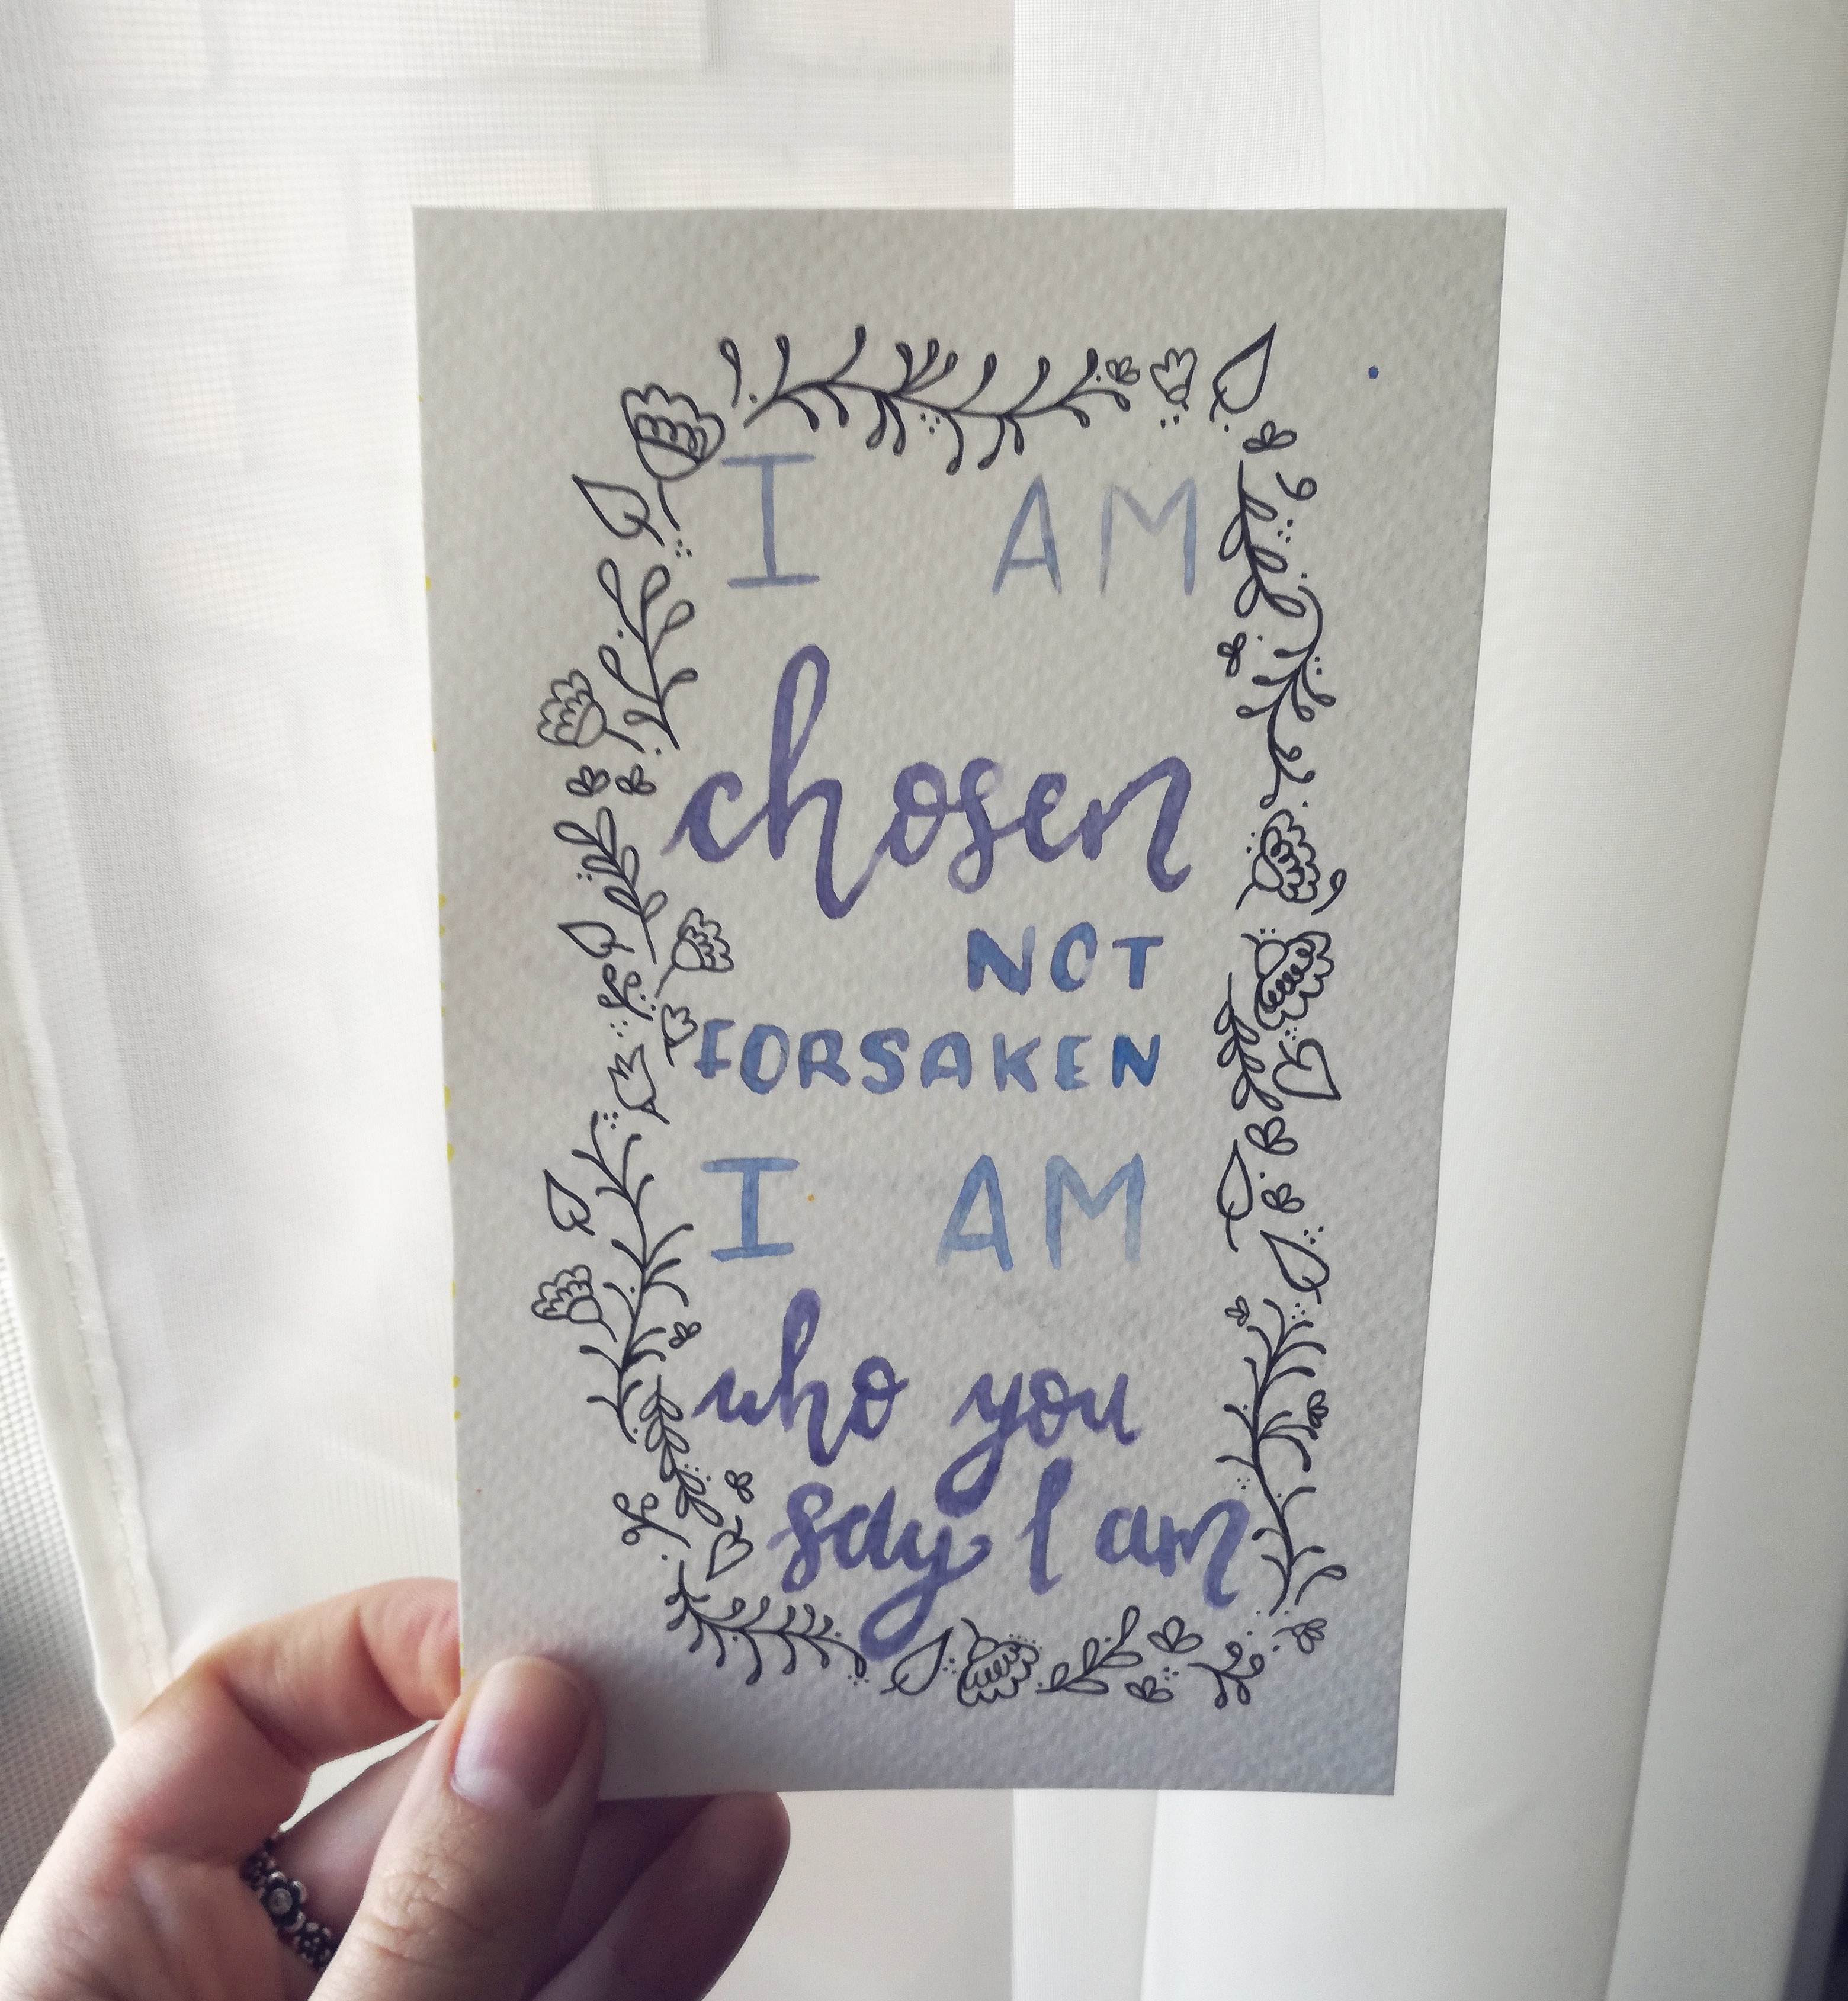 I AM
chosen
NOT
FORSAKEN
I AM
who you
say I am